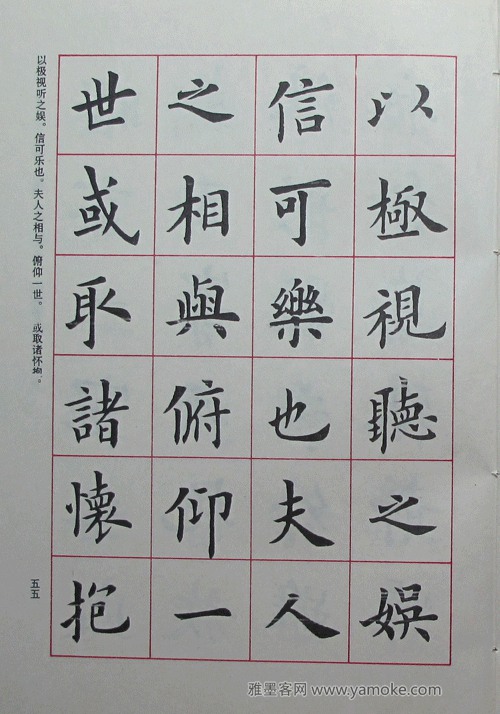 以極視聽之娯
信可樂也夫人
之相與俯仰一
世或取諸懷抱
以极视听之娱。信可乐也。夫人之相与。俯仰一世。 或取诸怀抱。
五五
雅墨客网 www.yamoke.com